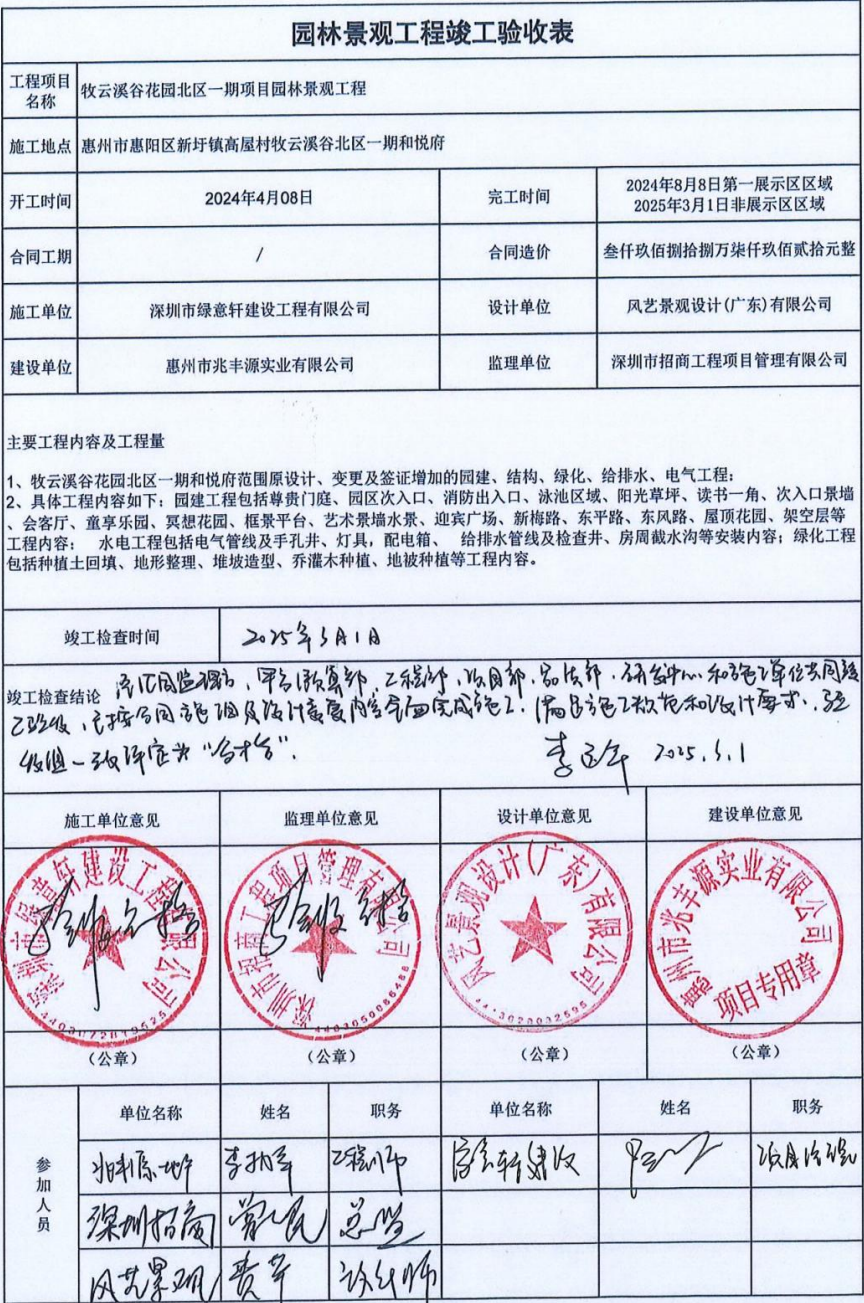 园林景观工程竣工验收表
工程项目名称 牧云溪谷花园北区一期项目园林景观工程
施工地点 惠州市惠阳区新圩镇高屋村牧云溪谷北区一期和悦府
开工时间 2024年4月08日 完工时间 2024年8月8日第一展示区区域
2025年3月1日非展示区区域
合同工期 / 合同造价 叁仟玖佰捌拾捌万柒仟玖佰贰拾元整
施工单位 深圳市绿意轩建设工程有限公司 设计单位 风艺景观设计(广东)有限公司
建设单位 惠州市兆丰源实业有限公司 监理单位 深圳市招商工程项目管理有限公司
主要工程内容及工程量
1、牧云溪谷花园北区一期和悦府范围原设计、变更及签证增加的园建、结构、绿化、给排水、电气工程;
2、具体工程内容如下:园建工程包括尊贵门庭、园区次入口、消防出入口、泳池区域、阳光草坪、读书一角、次入口景墙
、会客厅、童享乐园、冥想花园、框景平台、艺术景墙水景、迎宾广场、新梅路、东平路、东风路、屋顶花园、架空层等
工程内容; 水电工程包括电气管线及手孔井、灯具,配电箱、 给排水管线及检查井、房周截水沟等安装内容;绿化工程
包括种植土回填、地形整理、堆坡造型、乔灌木种植、地被种植等工程内容。
竣工检查时间 2025年3月1日
竣工检查结论 监理、甲方预算部、工程部、项目部、研发中心和施工单位共同竣
工验收,已按合同施工图及设计变更内容全面完成施工,满足施工规范和设计要求,验
收组一致评定为“合格”。
2025.3.1
施工单位意见 监理单位意见 设计单位意见 建设单位意见
深圳市绿意轩建设工程有限公司
验收合格
深圳市招商工程项目管理有限公司
4403050086488
验收合格
风艺景观设计(广东)有限公司
惠州市兆丰源实业有限公司
项目专用章
(公章) (公章) (公章) (公章)
参加人员
单位名称 姓名 职务 单位名称 姓名 职务
工程师
深圳招商 总监
风艺景观 设计师